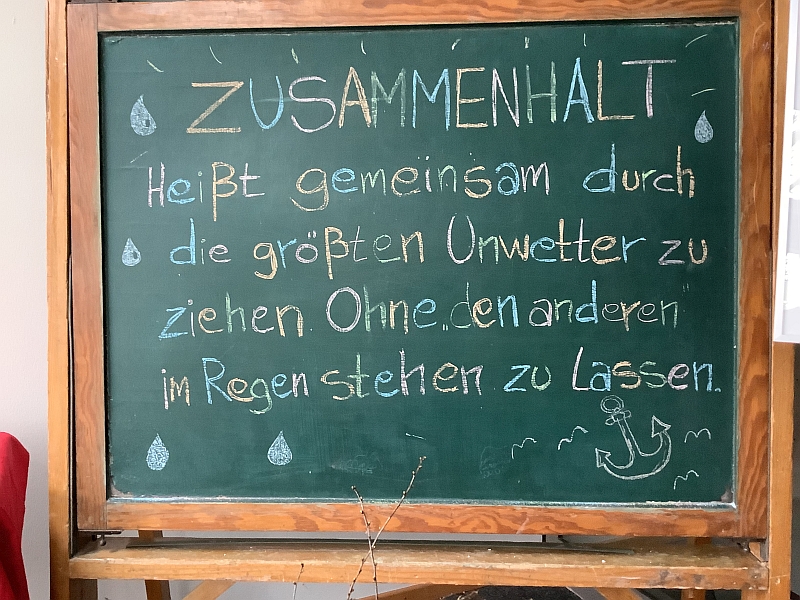 ZUSAMMENHALT
Heißt gemeinsam durch
die größten Unwetter zu
ziehen. Ohne „den anderen"
im Regen stehen zu Lassen.